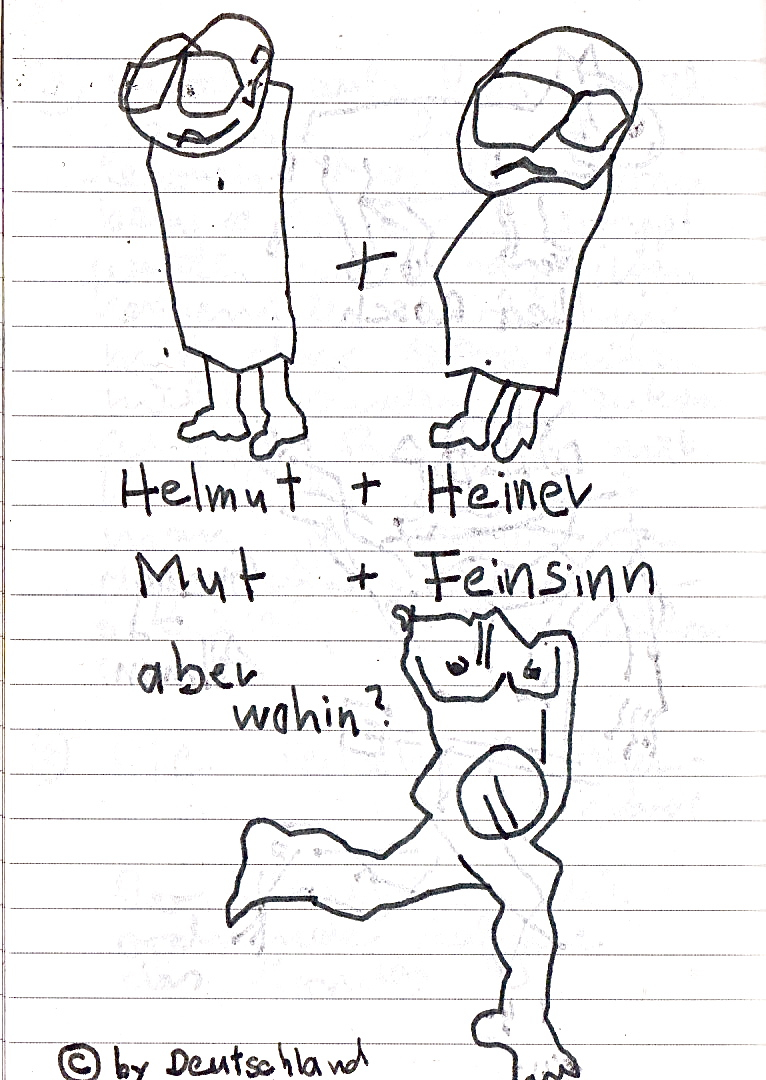 +
Helmut + Heiner
Mut + Feinsinn
aber
wohin?
© by Deutschland